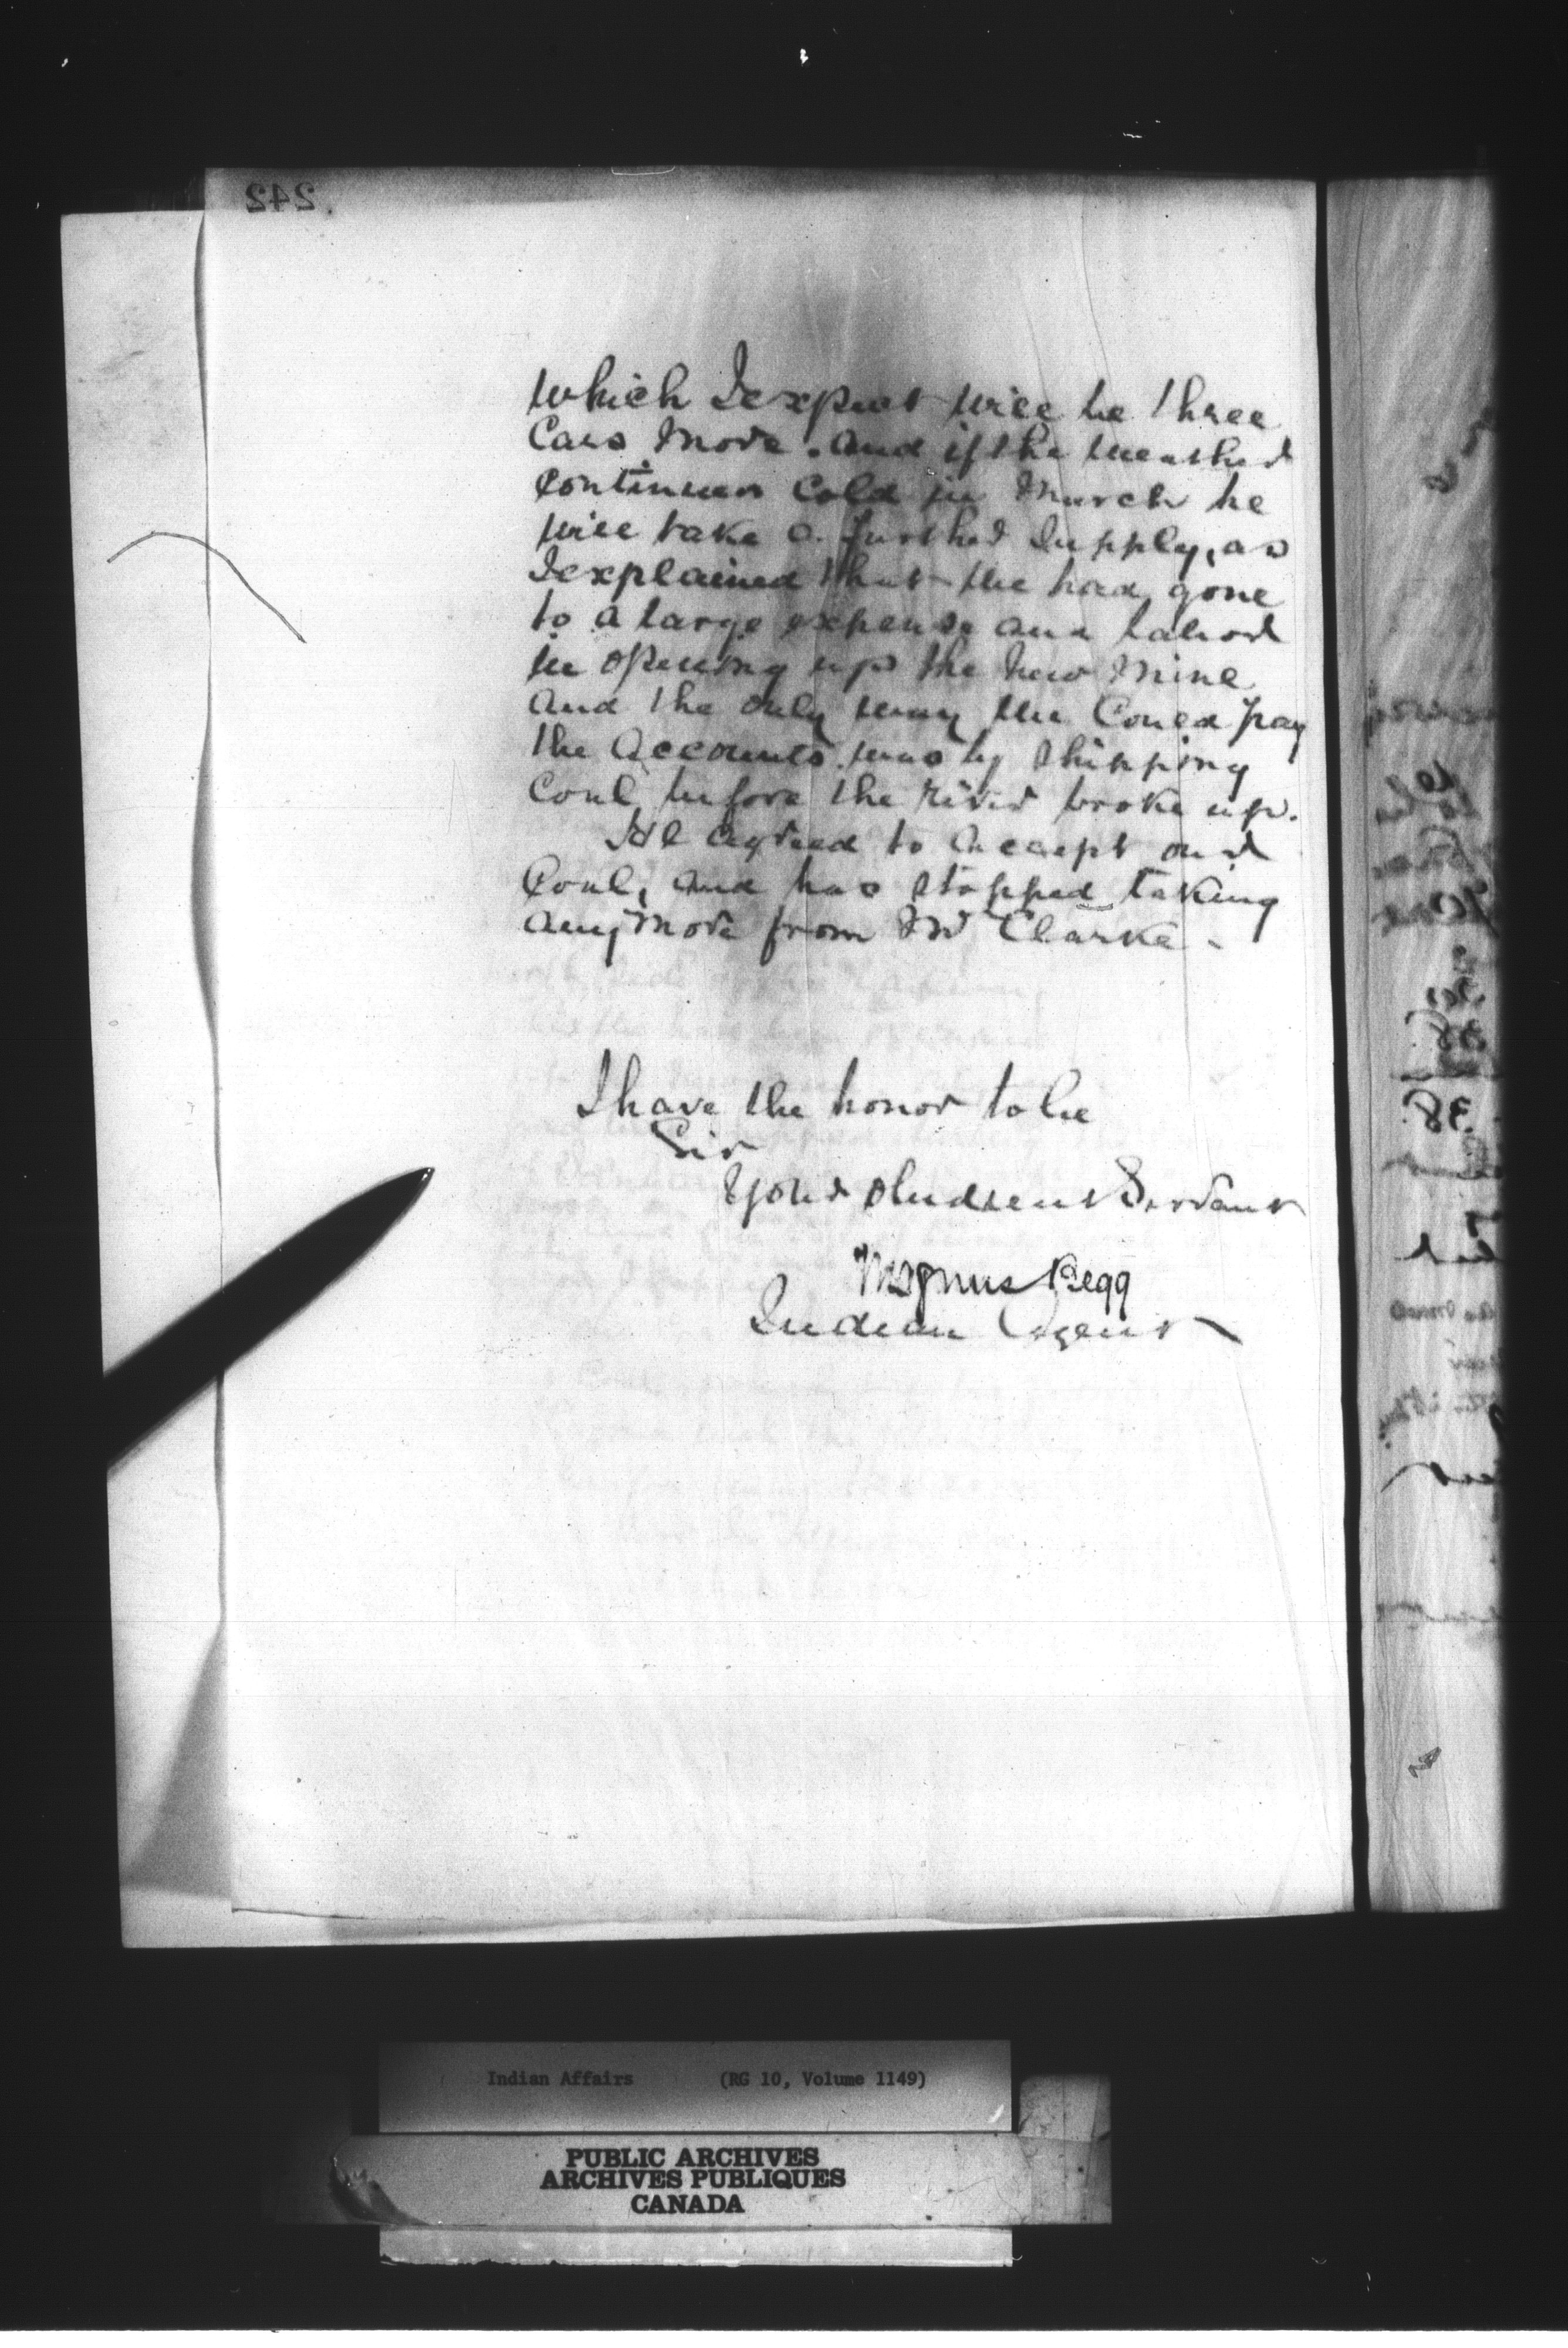 242
which I expect will be three
Cars More. and if the weather
continues Cold in March he
will take a further Supply, as
I explained that we had gone
to a large expense and labor
in opening up the new Mine
and the only way we Could pay
the Accounts was by Shipping
Coal before the river broke up.
He agreed to accept our
Coal, and has stopped taking
any more from Mr Clarke.
I have the honor to be
Sir
Your obedient Servant
Magnus Begg
Indian Agent
38
Indian Affairs (RG 10, Volume 1149)
PUBLIC ARCHIVES
ARCHIVES PUBLIQUES
CANADA